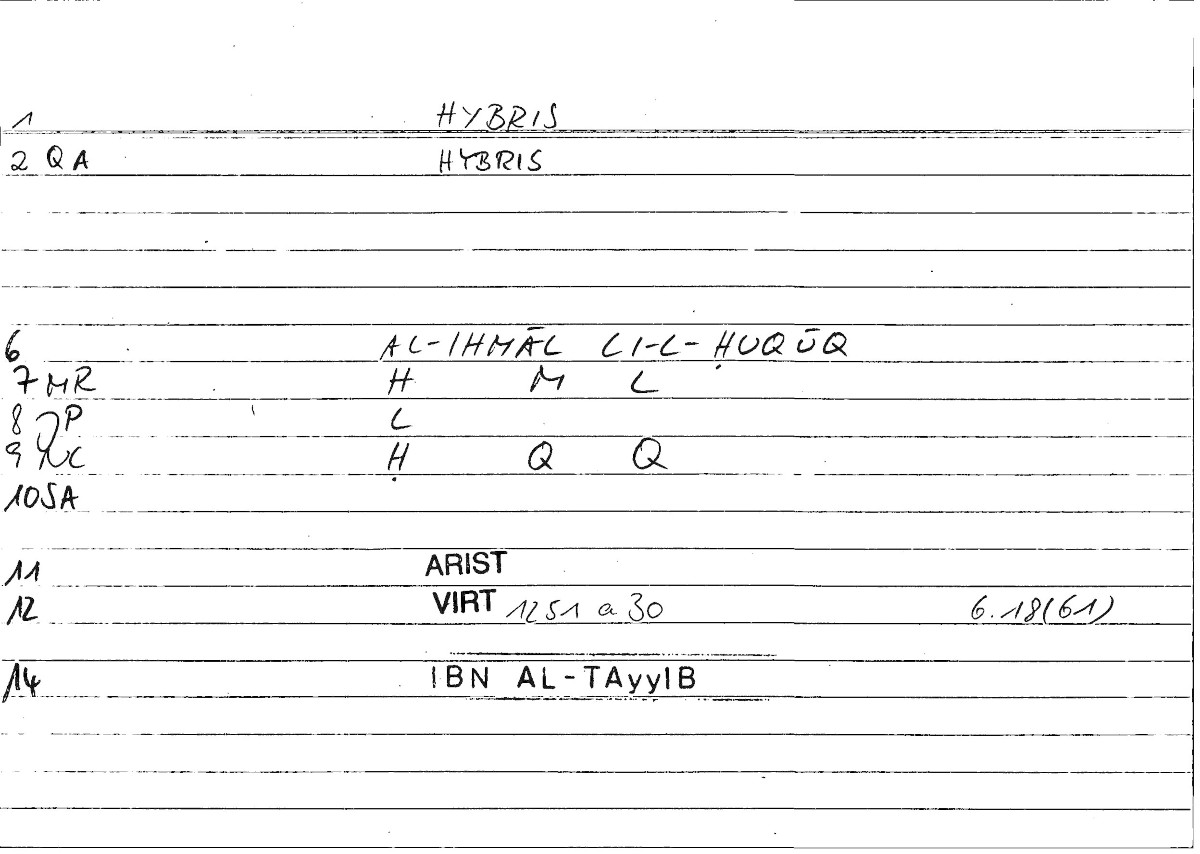 1 HYBRIS
2 QA HYBRIS
6 AL-IHMĀL LI-L-ḤUQŪQ
7 MR H M L
8 P L
9 C Ḥ Q Q
10 SA
11 ARIST
12 VIRT 1251 a 30 6.18(61)
14 IBN AL-TAyyIB